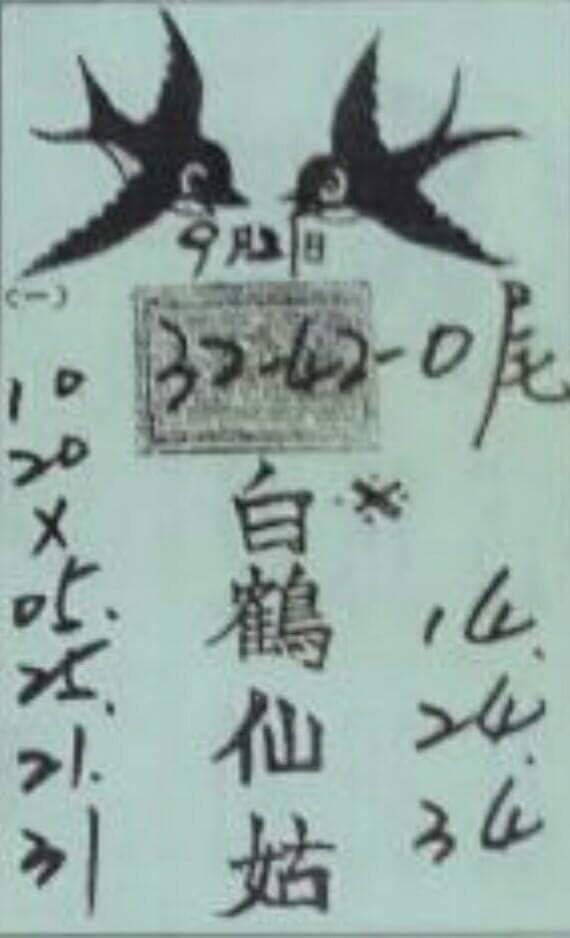 9月21日
(一)
32-42-0尾
10
20
×
05.
25.
21.
31
※
白鶴仙姑
14.
24.
34